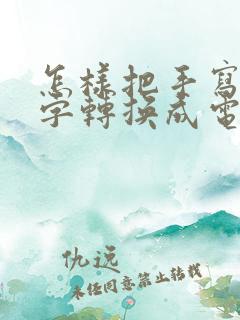 怎樣把手寫
字轉換成電
仇远
未径同意禁止转载